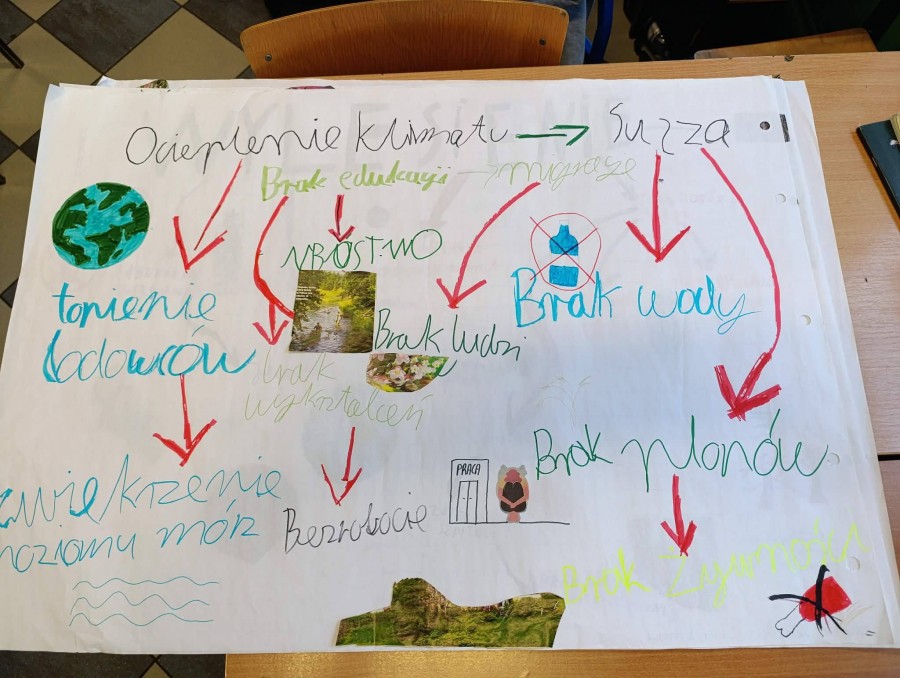 Ocieplenie Klimatu → Susza
Brak edukacji → migracje
UBÓSTWO
topienie
lodowców
Brak ludzi
Brak wody
brak
wykształceń
Brak plonów
PRACA
Zwiekrzenie
poziomu mórz
Bezrobocie
Brak Żywności